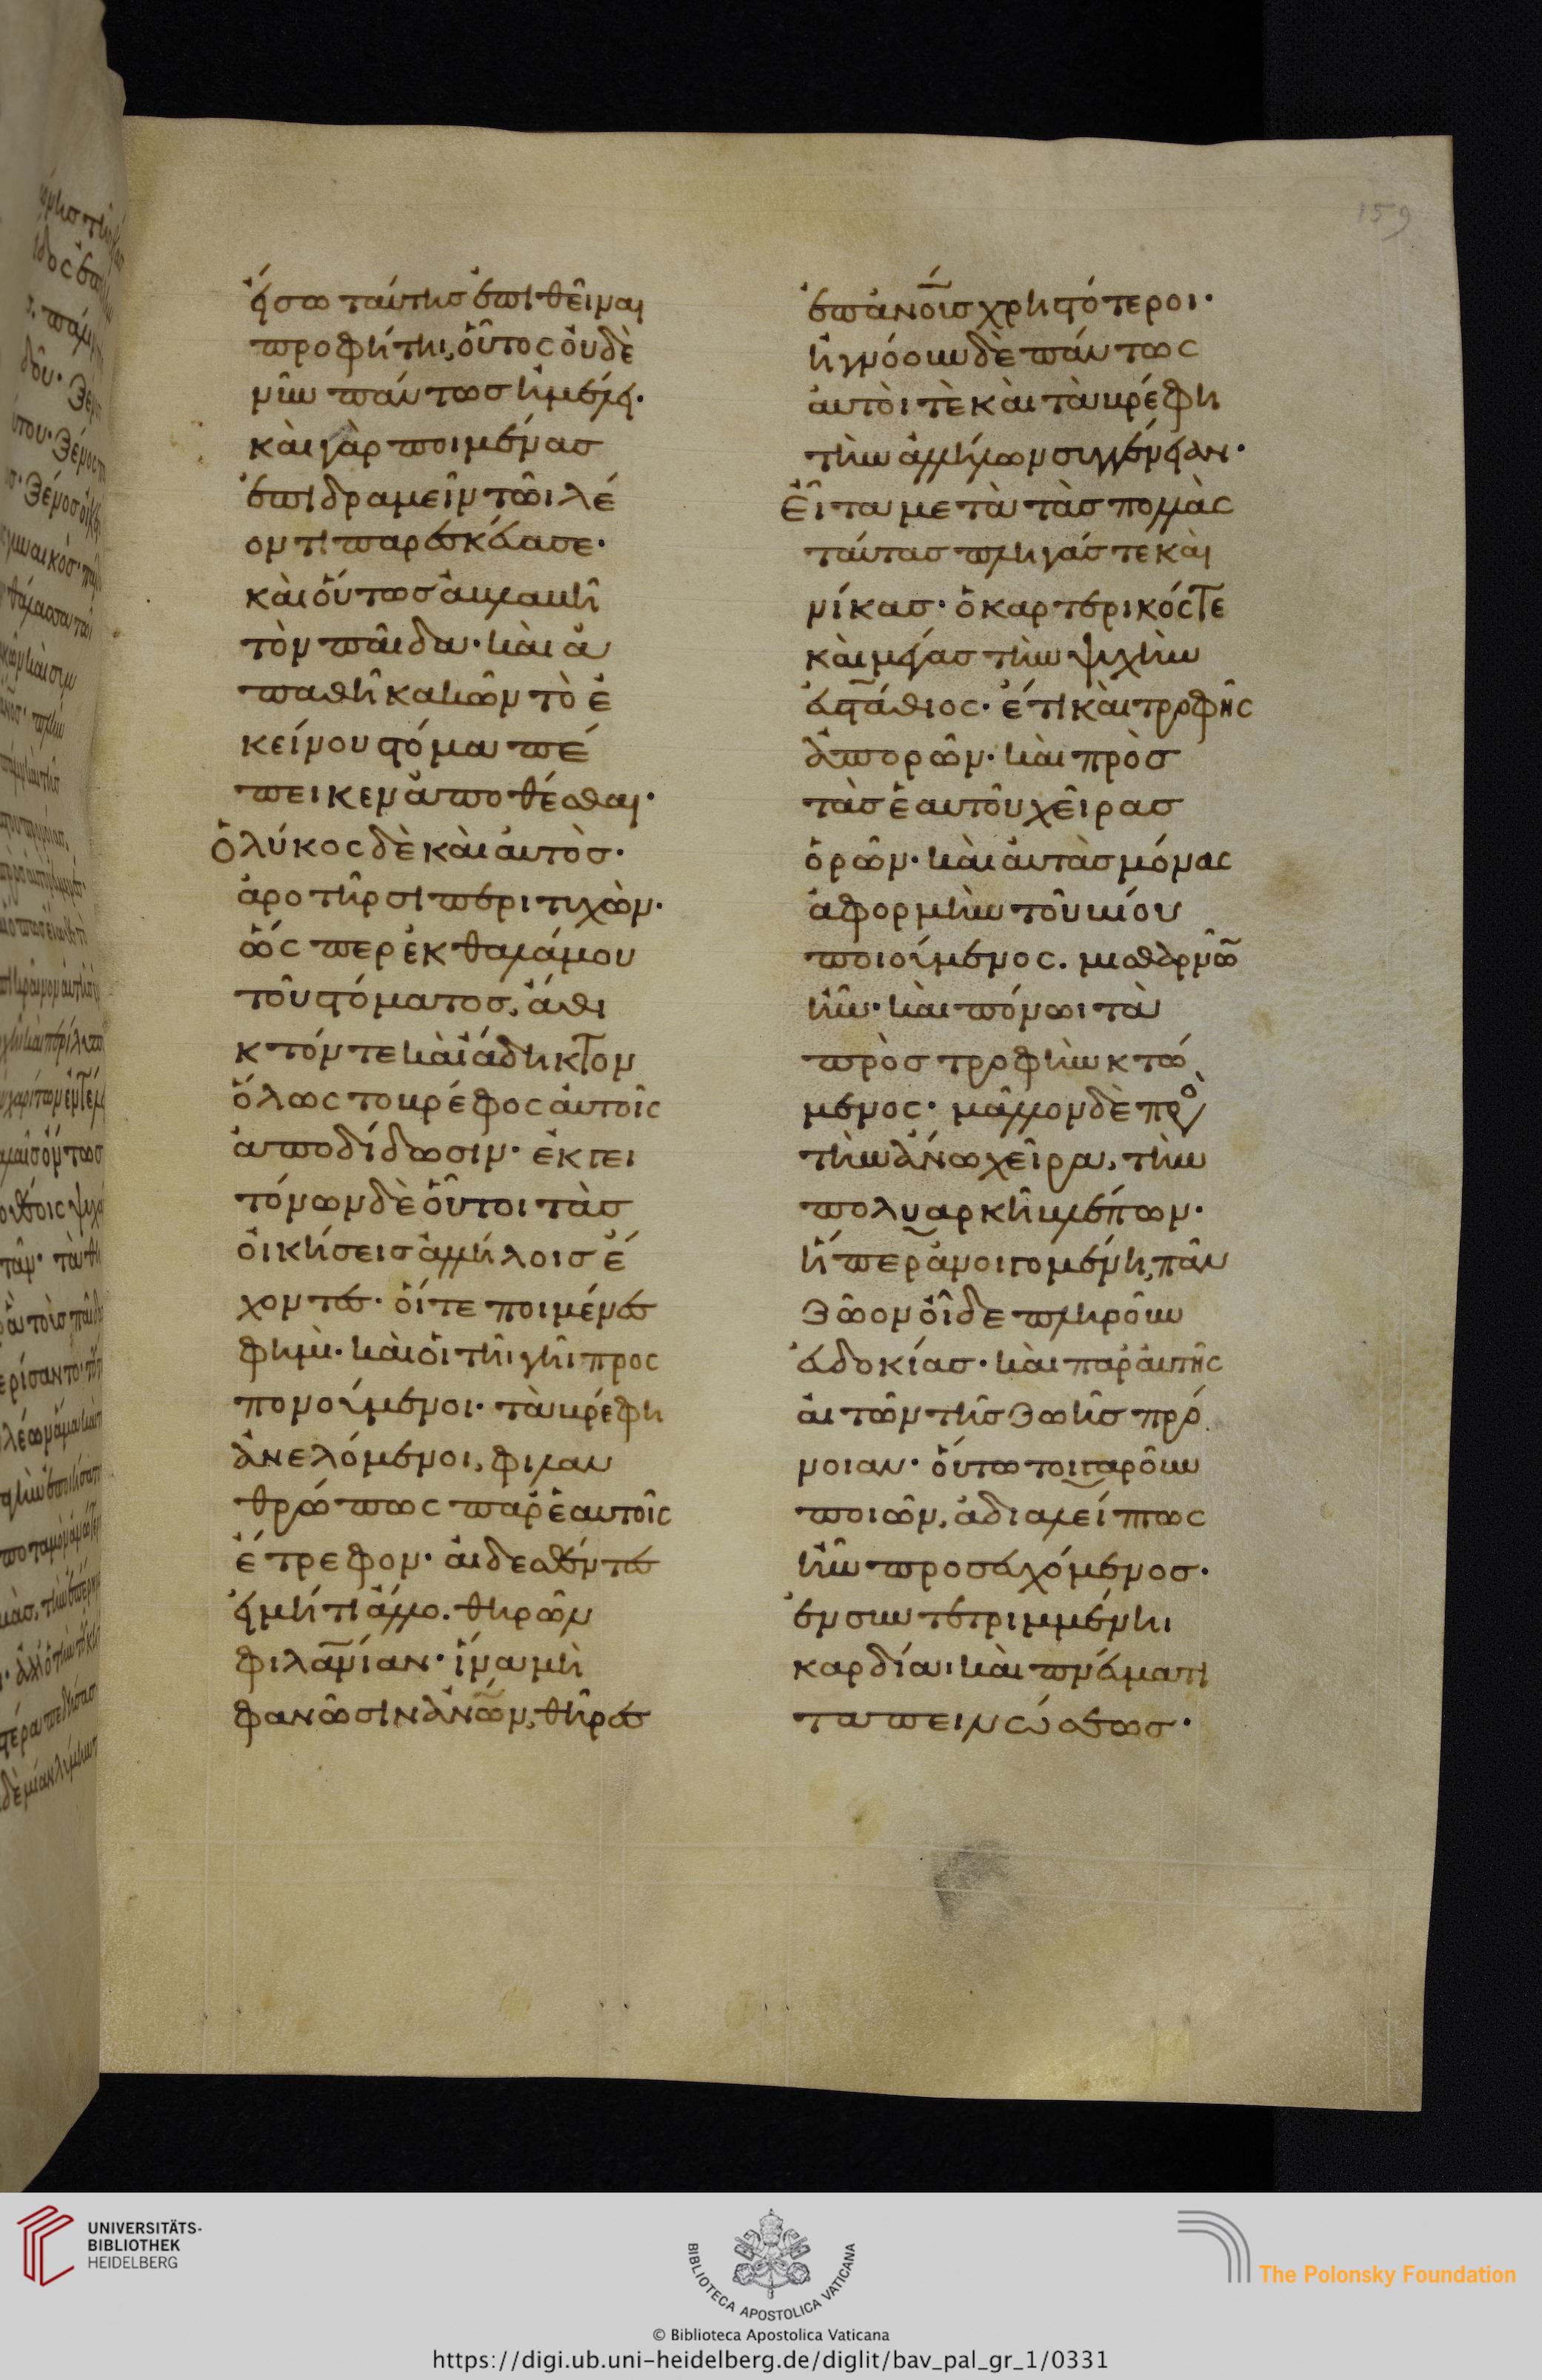 εἴσω ταύτης ἐπιθεῖναι
προφήτηι, οὗτος οὐδὲ
νῦν πάντως ἠμέλει.
καὶ γὰρ ποιμένας
ἐπιδραμεῖν τῶι λέ
οντι παρεσκεύασε·
καὶ οὕτως ἀβλαβῆ
τὸν παῖδα· καὶ ἀ
παθῆ κακῶν τὸ ἐ
κείνου στόμα πέ
πεικεν ἀποθέσθαι·
ὁ λύκος δὲ καὶ αὐτὸς·
ἀροτῆρσι περιτυχὼν·
ὥσπερ ἐκ θαλάμου
τοῦ στόματος, ἄθι
κτόν τε καὶ ἄδηκτον
ὅλως το βρέφος αὐτοῖς
ἀποδίδωσιν· ἐκ γει
τόνων δὲ οὗτοι τὰς
οἰκήσεις ἀλλήλοις ἔ
χοντες· οἵτε ποιμένες
φημὶ· καὶ οἱ τῆι γῆι προς
πονούμενοι· τὰ βρέφη
ἀνελόμενοι, φιλαν
θρώπως παρ' ἑαυτοῖς
ἔτρεφον· αἰδεσθέντες
εἰ μή τι ἄλλο. θηρῶν
φιλανίαν· ἵνα μὴ
φανῶσιν ἀνῶν, θῆρες
ἐπ' ἀνοις χρηστότεροι·
ἠγνόουν δὲ πάντως
αὐτοί τὲ καὶ τὰ βρέφη
τὴν ἀλλήλων συγγένειαν·
Εἶτα μετὰ τὰς πολλὰς
ταύτας πληγάς τε καὶ
νίκας· ὁ καρτερικός τε
καὶ μέγας τὴν ψυχὴν
εὐστάθιος· ἔτι καὶ τροφῆς
ἀπορῶν· καὶ πρὸς
τὰς ἑαυτοῦ χεῖρας
ὁρῶν· καὶ αὐτὰς μόνας
ἀφορμὴν τοῦ βίου
ποιούμενος. μισθαρνῶ
ἦν· καὶ πόνωι τὰ
πρὸς τροφὴν κτώ
μενος· μᾶλλον δὲ προ
τὴν ἄνω χεῖρα, τὴν
πολυαρκῆ βλέπων·
ἥπερ ἀνοιγομένη, πᾶν
ζῶον οἶδε πληροῦν
εὐδοκίας· καὶ παρ' αὐτῆς
αἰτῶν τῆς ζωῆς πρό
νοιαν· οὕτω τοιγαροῦν
ποιῶν, ἀδιαλείπτως
ἦν προσευχόμενος·
ἐν συντετριμμένηι
καρδίαι καὶ πνεύματι
ταπεινώσεως·
159
UNIVERSITÄTS-
BIBLIOTHEK
HEIDELBERG
BIBLIOTECA APOSTOLICA VATICANA
The Polonsky Foundation
© Biblioteca Apostolica Vaticana
https://digi.ub.uni-heidelberg.de/diglit/bav_pal_gr_1/0331